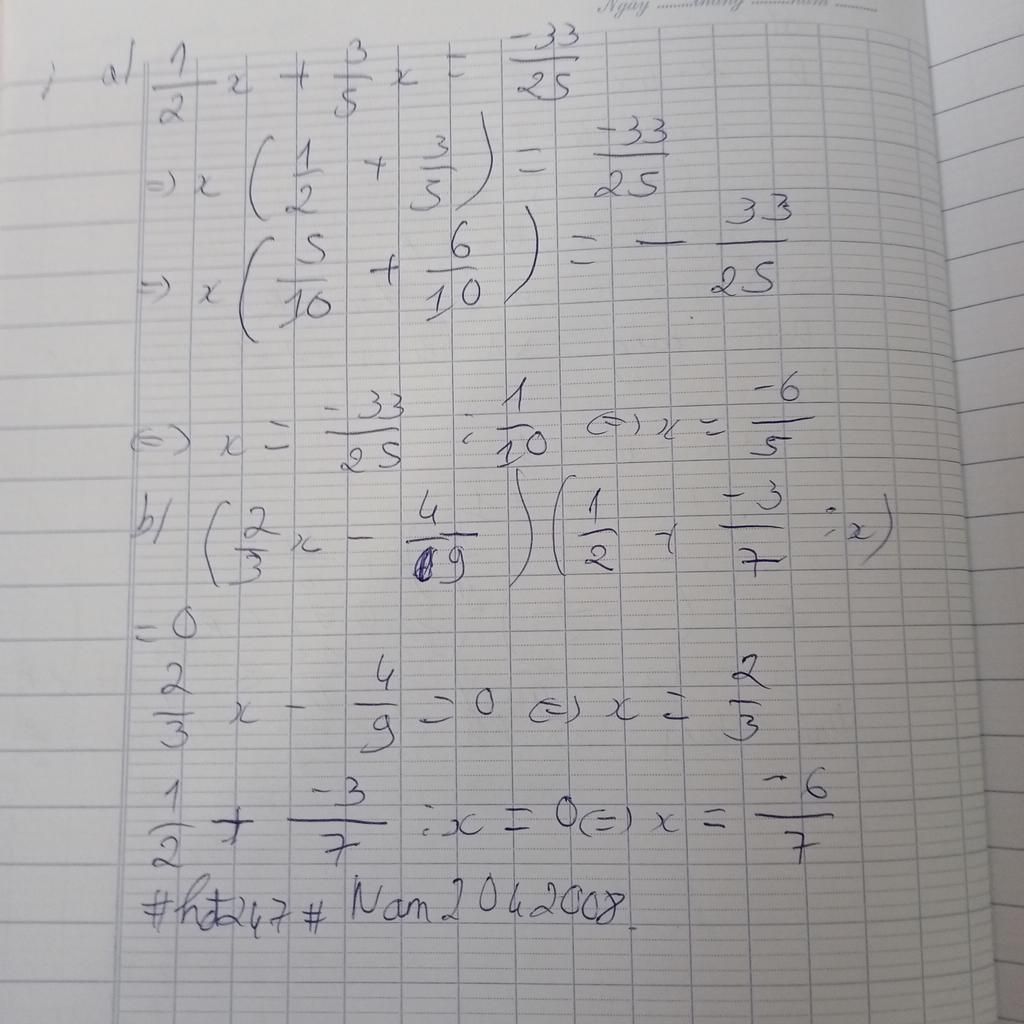 Ngày
a) 1/2 x + 3/5 x = -33/25
=> x (1/2 + 3/5) = -33/25
=> x (5/10 + 6/10) = - 33/25
(=) x = -33/25 : 1/10 (=) x = -6/5
b) (2/3 x - 4/9) (1/2 + -3/7 : x)
= 0
2/3 x - 4/9 = 0 (=) x = 2/3
1/2 + -3/7 : x = 0 (=) x = -6/7
#hđ247# Nam2042008